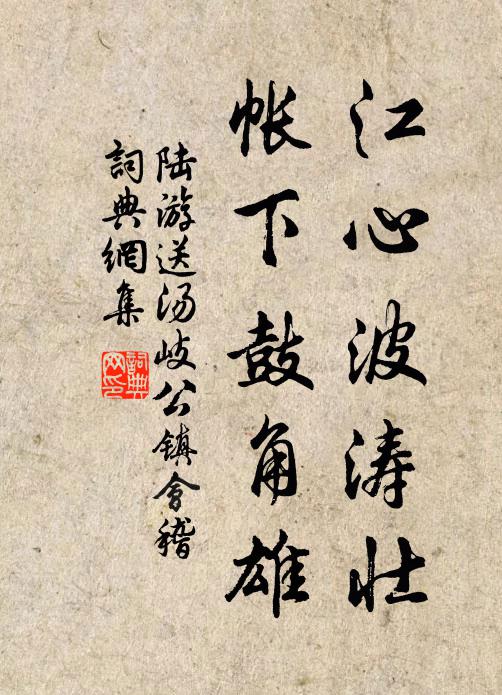 江心波涛壮
帐下鼓角雄
陆游送汤岐公镇會稽
詞典網集
詞典网印